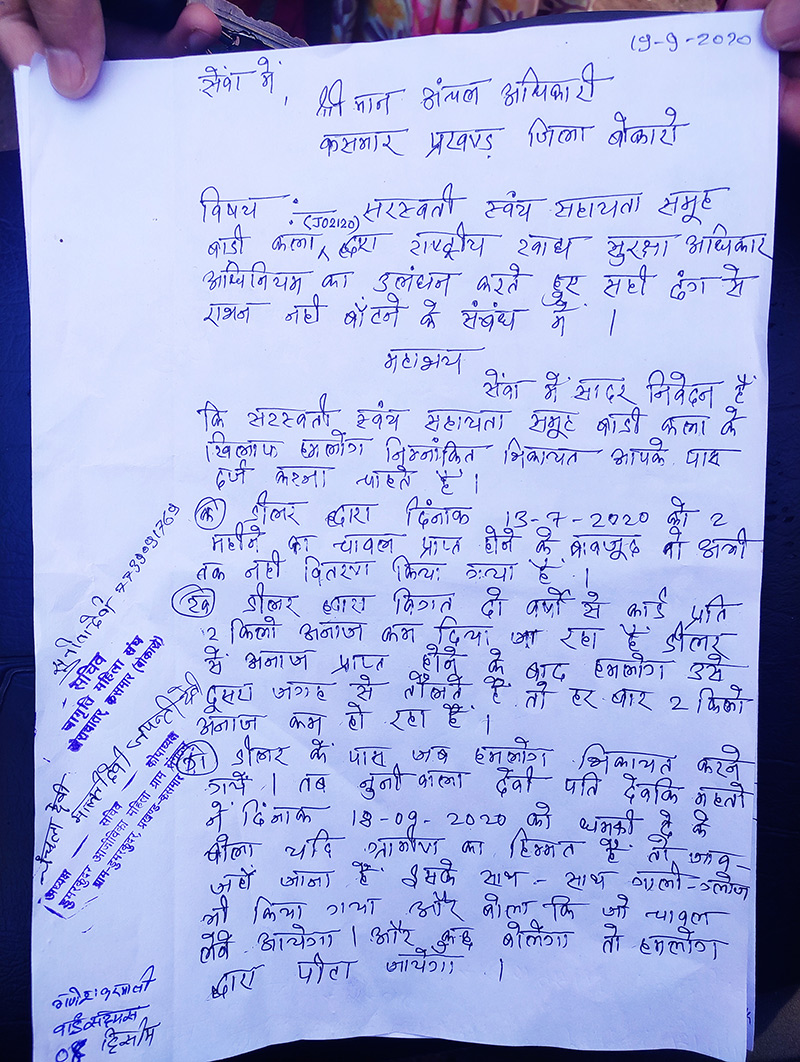 19-9-2020
सेंवा में,
श्री मान अंचल अधिकारी
कसमार प्रखण्ड़ जिला बोकारो
विषय : (J02120) सरस्वती स्वंय सहायता समूह
बाडी कला, द्वारा राष्ट्रीय खाद्य सुरक्षा अधिकार
अधिनियम का उलंघन करते हुए सही ढंग से
राशन नही बाँटने के संबंध में ।
महाशय
सेंवा में सादर निवेदन हैं
कि सरस्वती स्वंय सहायता समूह बाडी कला के
खिलाफ हमलोग निम्नांकित शिकायत आपके पास
दर्ज करना चाहते हैं ।
(क) डीलर द्वारा दिंनाक 13-7-2020 को 2
महीने का चावल प्राप्त होने के बावजूद वो अभी
तक नही वितरण किया गया हैं ।
(ख) डीलर द्वारा विगत दो वर्षो से कार्ड प्रति
2 किलो अनाज कम दिया जा रहा हैं डीलर
से अनाज प्राप्त होने के बाद हमलोग उसे
दूसरा जगह से तौलते हैं तो हर बार 2 किलो
अनाज कम हो रहा हैं ।
(ग) डीलर के पास जब हमलोग शिकायत करने
गयें । तब चुनीबाला देवी पति देवकि महतो
ने दिंनाक 18-09-2020 को धमकी दे के
बोला यदि ग्रामीण का हिम्मत हैं तो जाव-
जहाँ जाना हैं इसके साथ-साथ गाली-गलौज
भी किया गया और बोला कि जो चावल
लेवे आयेगा । और कुछ बोलेंगा तो हमलोग
द्वारा पीटा जायेगा ।
सुनीता देवी 7739091769
सचिव
जागृति महिला संघ
खैराचातर कसमार (बोकारो)
चंचला देवी मालती जयन्ती देवी
अध्यक्ष — सचिव — कोषाध्यक्ष
डुमरकुदर आजीविका महिला ग्राम संगठन
ग्राम-डुमरकुदर, प्रखण्ड-कसमार
गणेश करमाली
वार्ड सदस्य
08 हिसीम